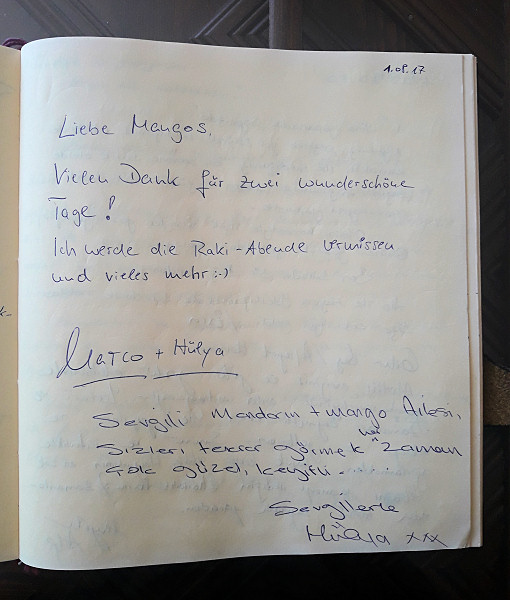 1.08.17
Liebe Mangos,
Vielen Dank für zwei wunderschöne
Tage!
Ich werde die Raki-Abende vermissen
und vieles mehr :-)
Marco + Hülya
Sevgili Mandarin + Mango Ailesi,
Sizleri tekrar görmek her zaman
çok güzel, keyifli.....
Sevgilerle
Hülya xxx